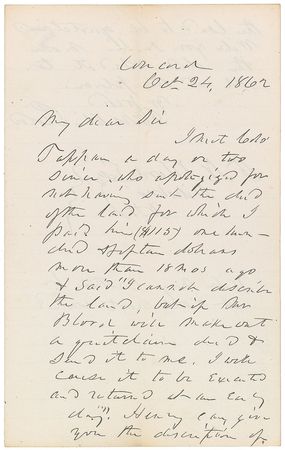 Concord
Oct 24, 1862
My dear Sir
I met Col
Tappan a day or two
since who apologized for
not having sent the deed
of the land for which I
paid him ($115) one hun-
dred & fifteen dollars
more than 18 mos ago
& said "I cannot describe
the land, but if Mr
Blood will make out
a quitclaim deed &
send it to me. I will
cause it to be executed
and returned at an early
day". Henry can give
you the description of